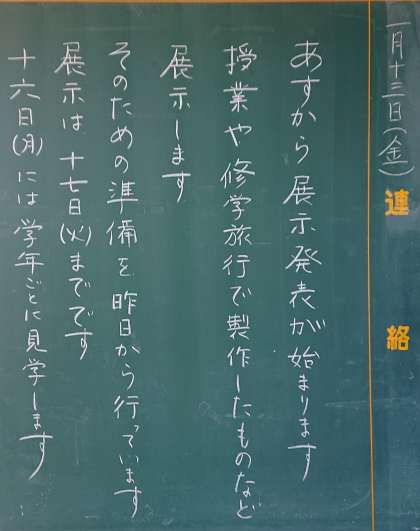 一月十三日(金)
連絡
あすから展示発表が始まります
授業や修学旅行で製作したものなど
展示します
そのための準備を昨日から行っています
展示は十七日(火)までです
十六日(月)には学年ごとに見学します